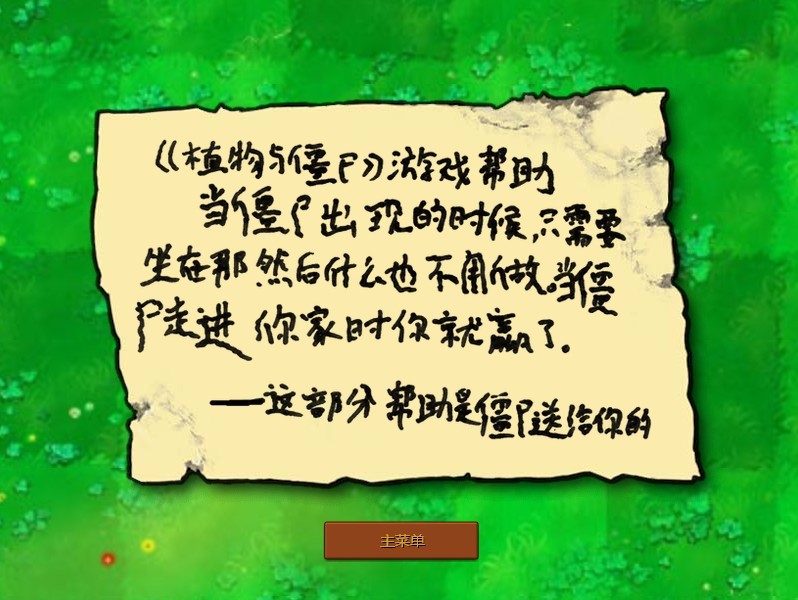 《植物与僵尸》游戏帮助
当僵尸出现的时候,只需要
坐在那然后什么也不用做。当僵
尸走进你家时你就赢了.
——这部分帮助是僵尸送给你的
主菜单